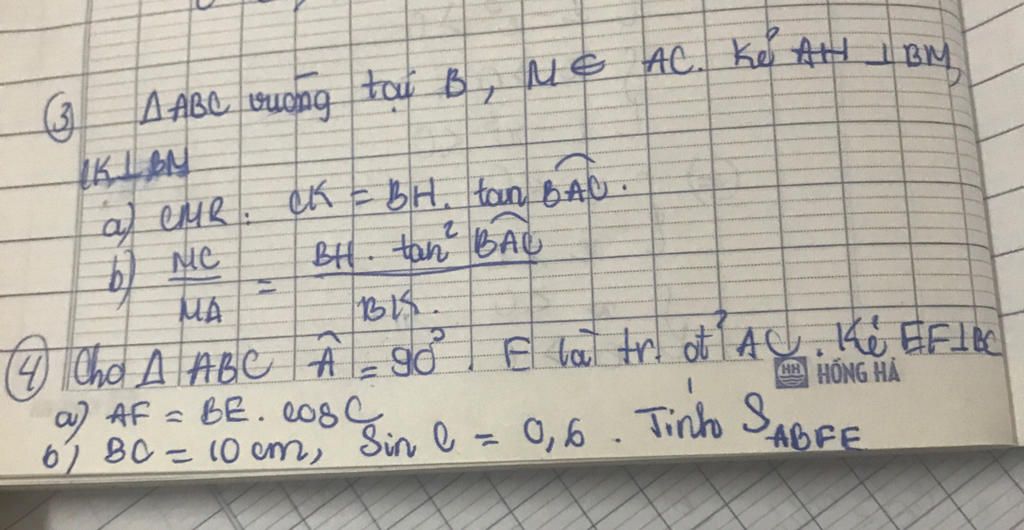 ③ ΔABC vuông tại B, M ∈ AC. Kẻ AH ⊥ BM,
CK ⊥ BM
a) CMR: CK = BH. tan BAC.
b) MC/MA = BH. tan² BAC / BK.
④ Cho Δ ABC Â = 90°. E là tr. đ' AC. Kẻ EF⊥BC
HH HỒNG HÀ
a) AF = BE. cos C
b) BC = 10 cm, Sin C = 0,6. Tính S ABFE